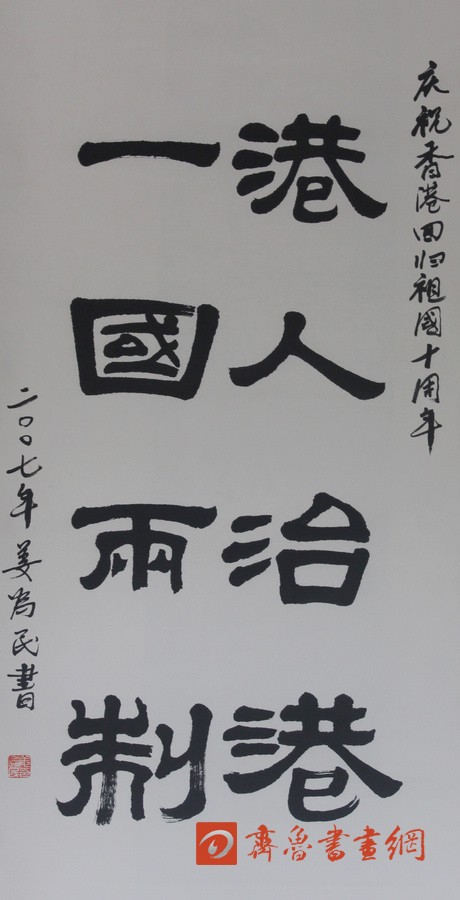 庆祝香港回归祖国十周年
港人治港
一國兩制
二〇〇七年姜为民書
齊魯書畫網